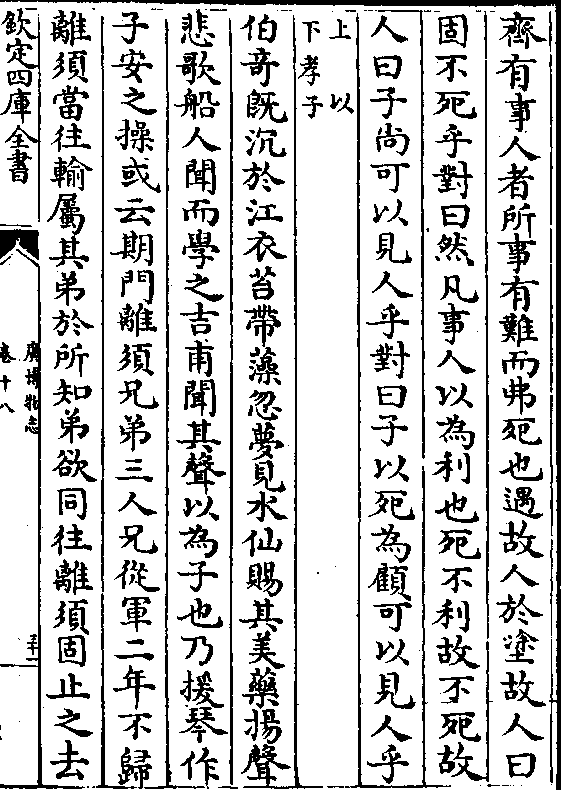 齊有事人者所事有難而弗死也遇故人於塗故人曰
固不死乎對曰然凡事人以為利也死不利故不死故
人曰子尚可以見人乎對曰子以死為顧可以見人乎
上以
下孝子
伯奇既沉於江衣苔帶藻忽夢見水仙賜其美藥揚聲
悲歌船人聞而學之吉甫聞其聲以為子也乃援琴作
子安之操或云期門離須兄弟三人兄從軍二年不歸
離須當往輸屬其弟於所知弟欲同往離須固止之去
欽定四庫全書
廣博物志
卷十八